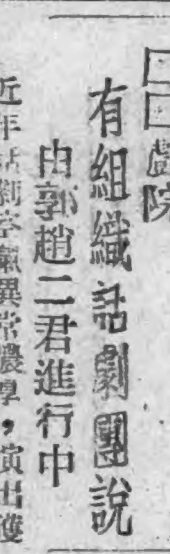 □□戲院
有組織話劇團說
由郭趙二君進行中
近年話劇空氣異常濃厚，演出獲